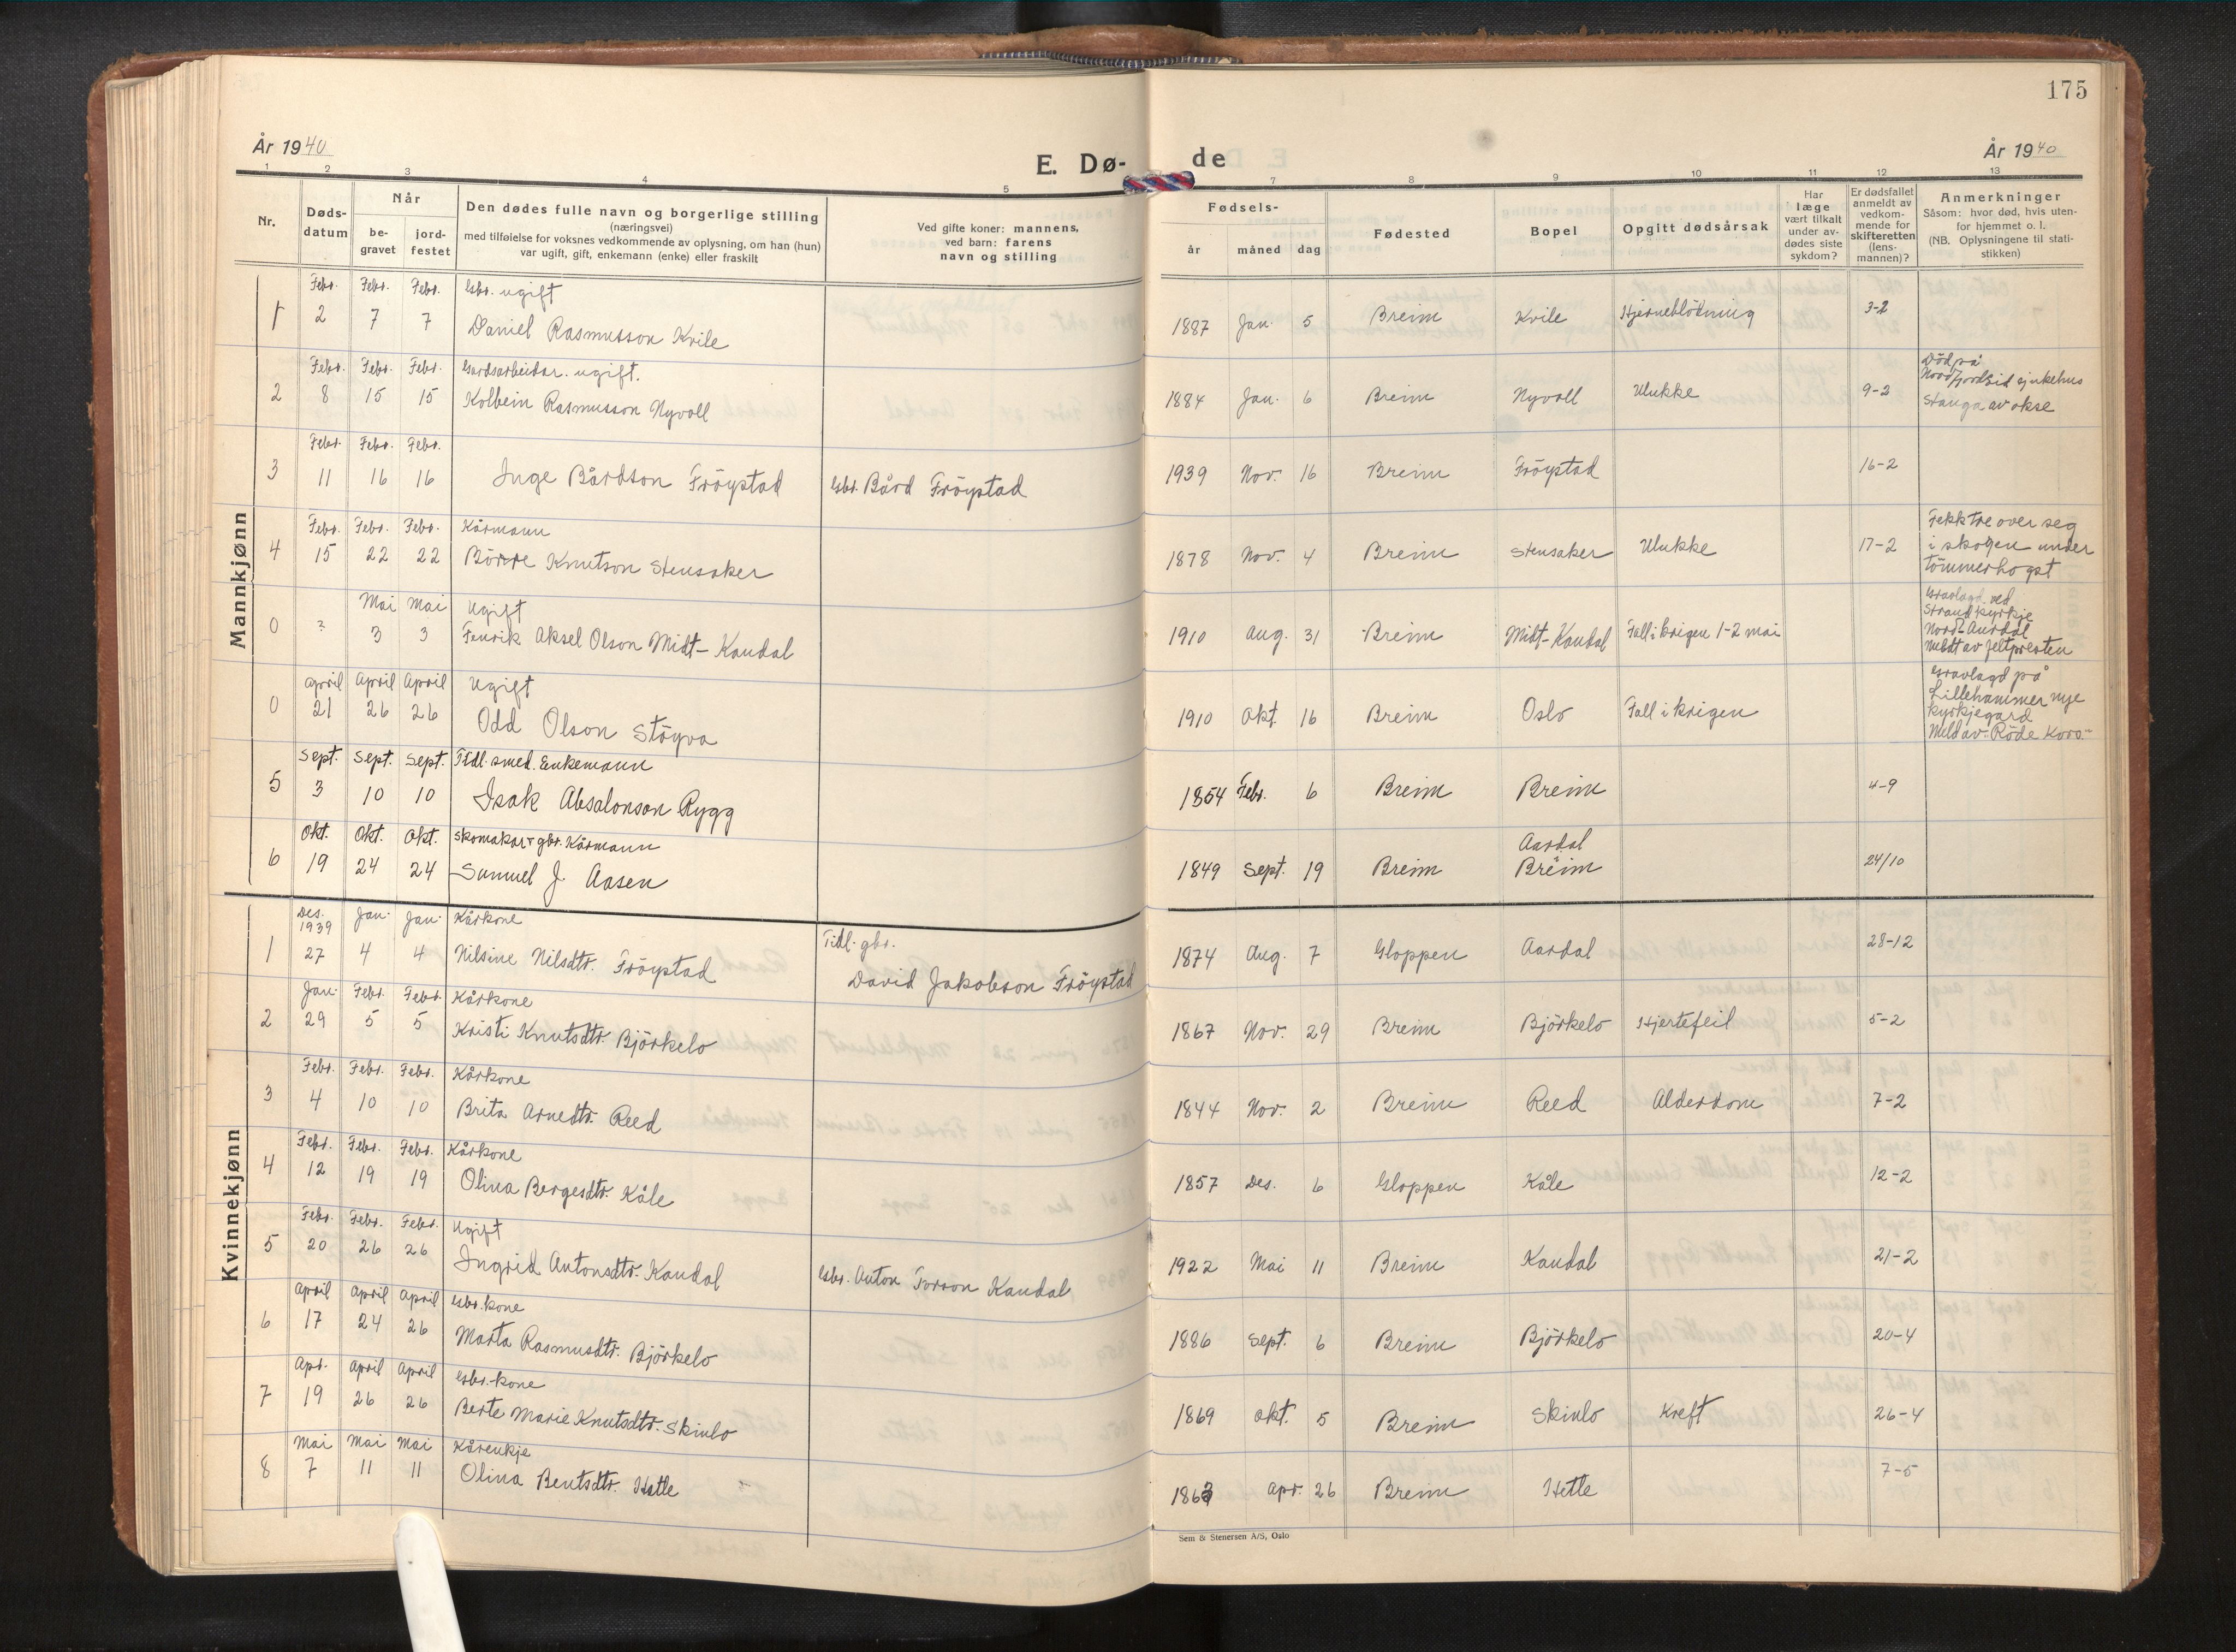 175
År 1940
E. Dø-
de
År 1940
1 2 3 4 5 7 8 9 10 11 12 13
Nr.
Døds-
datum
Når
be-
gravet
jord-
festet
Den dødes fulle navn og borgerlige stilling
(næringsvei)
med tilføielse for voksnes vedkommende av oplysning, om han (hun)
var ugift, gift, enkemann (enke) eller fraskilt
Ved gifte koner: mannens,
ved barn: farens
navn og stilling
Fødsels-
år måned dag
Fødested
Bopel
Opgitt dødsårsak
Har
læge
vært tilkalt
under av-
dødes siste
sykdom?
Er dødsfallet
anmeldt av
vedkom-
mende for
skifteretten
(lens-
mannen)?
Anmerkninger
Såsom: hvor død, hvis uten-
for hjemmet o. l.
(NB. Oplysningene til stati-
stikken)
Mannkjønn
Febr. Febr. Febr. Gbr. ugift
1 2 7 7 Daniel Rasmusson Kvile 1887 Jan. 5 Breim Kvile Hjerneblödning 3-2
Febr. Febr. Febr. Gardsarbeidar. ugift. Död på
Nordfjordeid sjukehus
2 8 15 15 Kolbein Rasmusson Nyvoll 1884 Jan. 6 Breim Nyvoll Ulukke 9-2 Stanga av okse
Febr. Febr. Febr.
3 11 16 16 Inge Bårdson Fröystad Gbr. Bård Fröystad 1939 Nov. 16 Breim Fröystad 16-2
Febr. Febr. Febr. Kårmann Fekk tre over seg
4 15 22 22 Börre Knutson Stensaker 1878 Nov. 4 Breim Stensaker Ulukke 17-2 i skogen under
tömmerhogst
Mai Mai Ugift Gravlagd ved
Strand kyrkje
0 ? 3 3 Fenrik Aksel Olson Midt-Kandal 1910 Aug. 31 Breim Midt-Kandal Fall i krigen 1-2 mai Nord-Aurdal
Meldt av feltpresten
April April April Ugift Gravlagd på
Lillehammer nye
0 21 26 26 Odd Olson Stöyva 1910 Okt. 16 Breim Oslo Fall i krigen kyrkjegard
Meld av Röde Kors.
Sept. Sept. Sept. Tidl. smed. Enkemann
5 3 10 10 Isak Absalonson Rygg 1854 Febr. 6 Breim Breim 4-9
Okt. Okt. Okt. Skomakar gbr. Kårmann Aardal
6 19 24 24 Samuel J. Aasen 1849 Sept. 19 Breim Breim 24/10
Kvinnekjønn
Des. 1939 Jan. Jan. Kårkone Tidl. gbr.
1 27 4 4 Nilsine Nilsdtr. Fröystad David Jakobson Fröystad 1874 Aug. 7 Gloppen Aardal 28-12
Jan. Febr. Febr. Kårkone
2 29 5 5 Kristi Knutsdtr. Björkelo 1867 Nov. 29 Breim Björkelo Hjertefeil 5-2
Febr. Febr. Febr. Kårkone
3 4 10 10 Brita Arnedtr. Reed 1844 Nov. 2 Breim Reed Alderdom 7-2
Febr. Febr. Febr. Kårkone
4 12 19 19 Olina Bergesdtr. Kåle 1857 Des. 6 Gloppen Kåle 12-2
Febr. Febr. Febr. Ugift
5 20 26 26 Ingrid Antonsdtr. Kandal Gbr. Anton Torson Kandal 1922 Mai 11 Breim Kandal 21-2
April April April Gbr. kone
6 17 24 26 Marta Rasmusdtr. Björkelo 1886 Sept. 6 Breim Björkelo 20-4
Apr. April April Gbr.-kone
7 19 26 26 Berte Marie Knutsdtr. Skinlo 1869 Okt. 5 Breim Skinlo Kreft 26-4
Mai Mai Mai Kårenkje
8 7 11 11 Olina Bentsdtr. Hetle 1863 Apr. 26 Breim Hetle 7-5
Sem & Stenersen A/S, Oslo